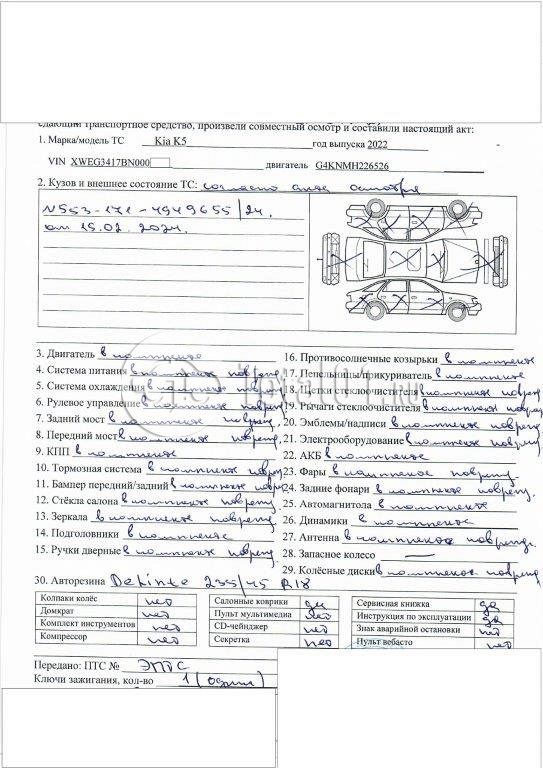 сдающий транспортное средство, произвели совместный осмотр и составили настоящий акт:
1. Марка/модель ТС Kia K5 год выпуска 2022
VIN XWEG3417BN000 двигатель G4KNMH226526
2. Кузов и внешнее состояние ТС: согласно акта осмотра
N553-171-4949655/24.
от 15.02.2024.
3. Двигатель в комплекте
4. Система питания в комплекте поврежд
5. Система охлаждения в комплекте поврежд
6. Рулевое управление в комплекте поврежд
7. Задний мост в комплекте поврежд
8. Передний мост в комплекте поврежд
9. КПП в комплекте
10. Тормозная система в комплекте поврежд
11. Бампер передний/задний в комплекте поврежд
12. Стёкла салона в комплекте поврежд
13. Зеркала в комплекте поврежд
14. Подголовники в комплекте
15. Ручки дверные в комплекте поврежд
16. Противосолнечные козырьки в комплекте
17. Пепельницы/прикуриватель в комплекте
18. Щетки стеклоочистителя в комплекте поврежд
19. Рычаги стеклоочистителя в комплекте поврежд
20. Эмблемы/надписи в комплекте поврежд
21. Электрооборудование в комплекте поврежд
22. АКБ в комплекте
23. Фары в комплекте поврежд
24. Задние фонари в комплекте поврежд
25. Автомагнитола в комплекте
26. Динамики в комплекте
27. Антенна в комплекте поврежд
28. Запасное колесо —
29. Колёсные диски в комплекте поврежд
30. Авторезина Delinte 235/45 R18
Колпаки колёс нет
Домкрат нет
Комплект инструментов нет
Компрессор нет
Салонные коврики да
Пульт мультимедиа нет
CD-чейнджер нет
Секретка нет
Сервисная книжка да
Инструкция по эксплуатации да
Знак аварийной остановки нет
Пульт вебасто нет
Передано: ПТС № ЭПТС
Ключи зажигания, кол-во 1 (один)